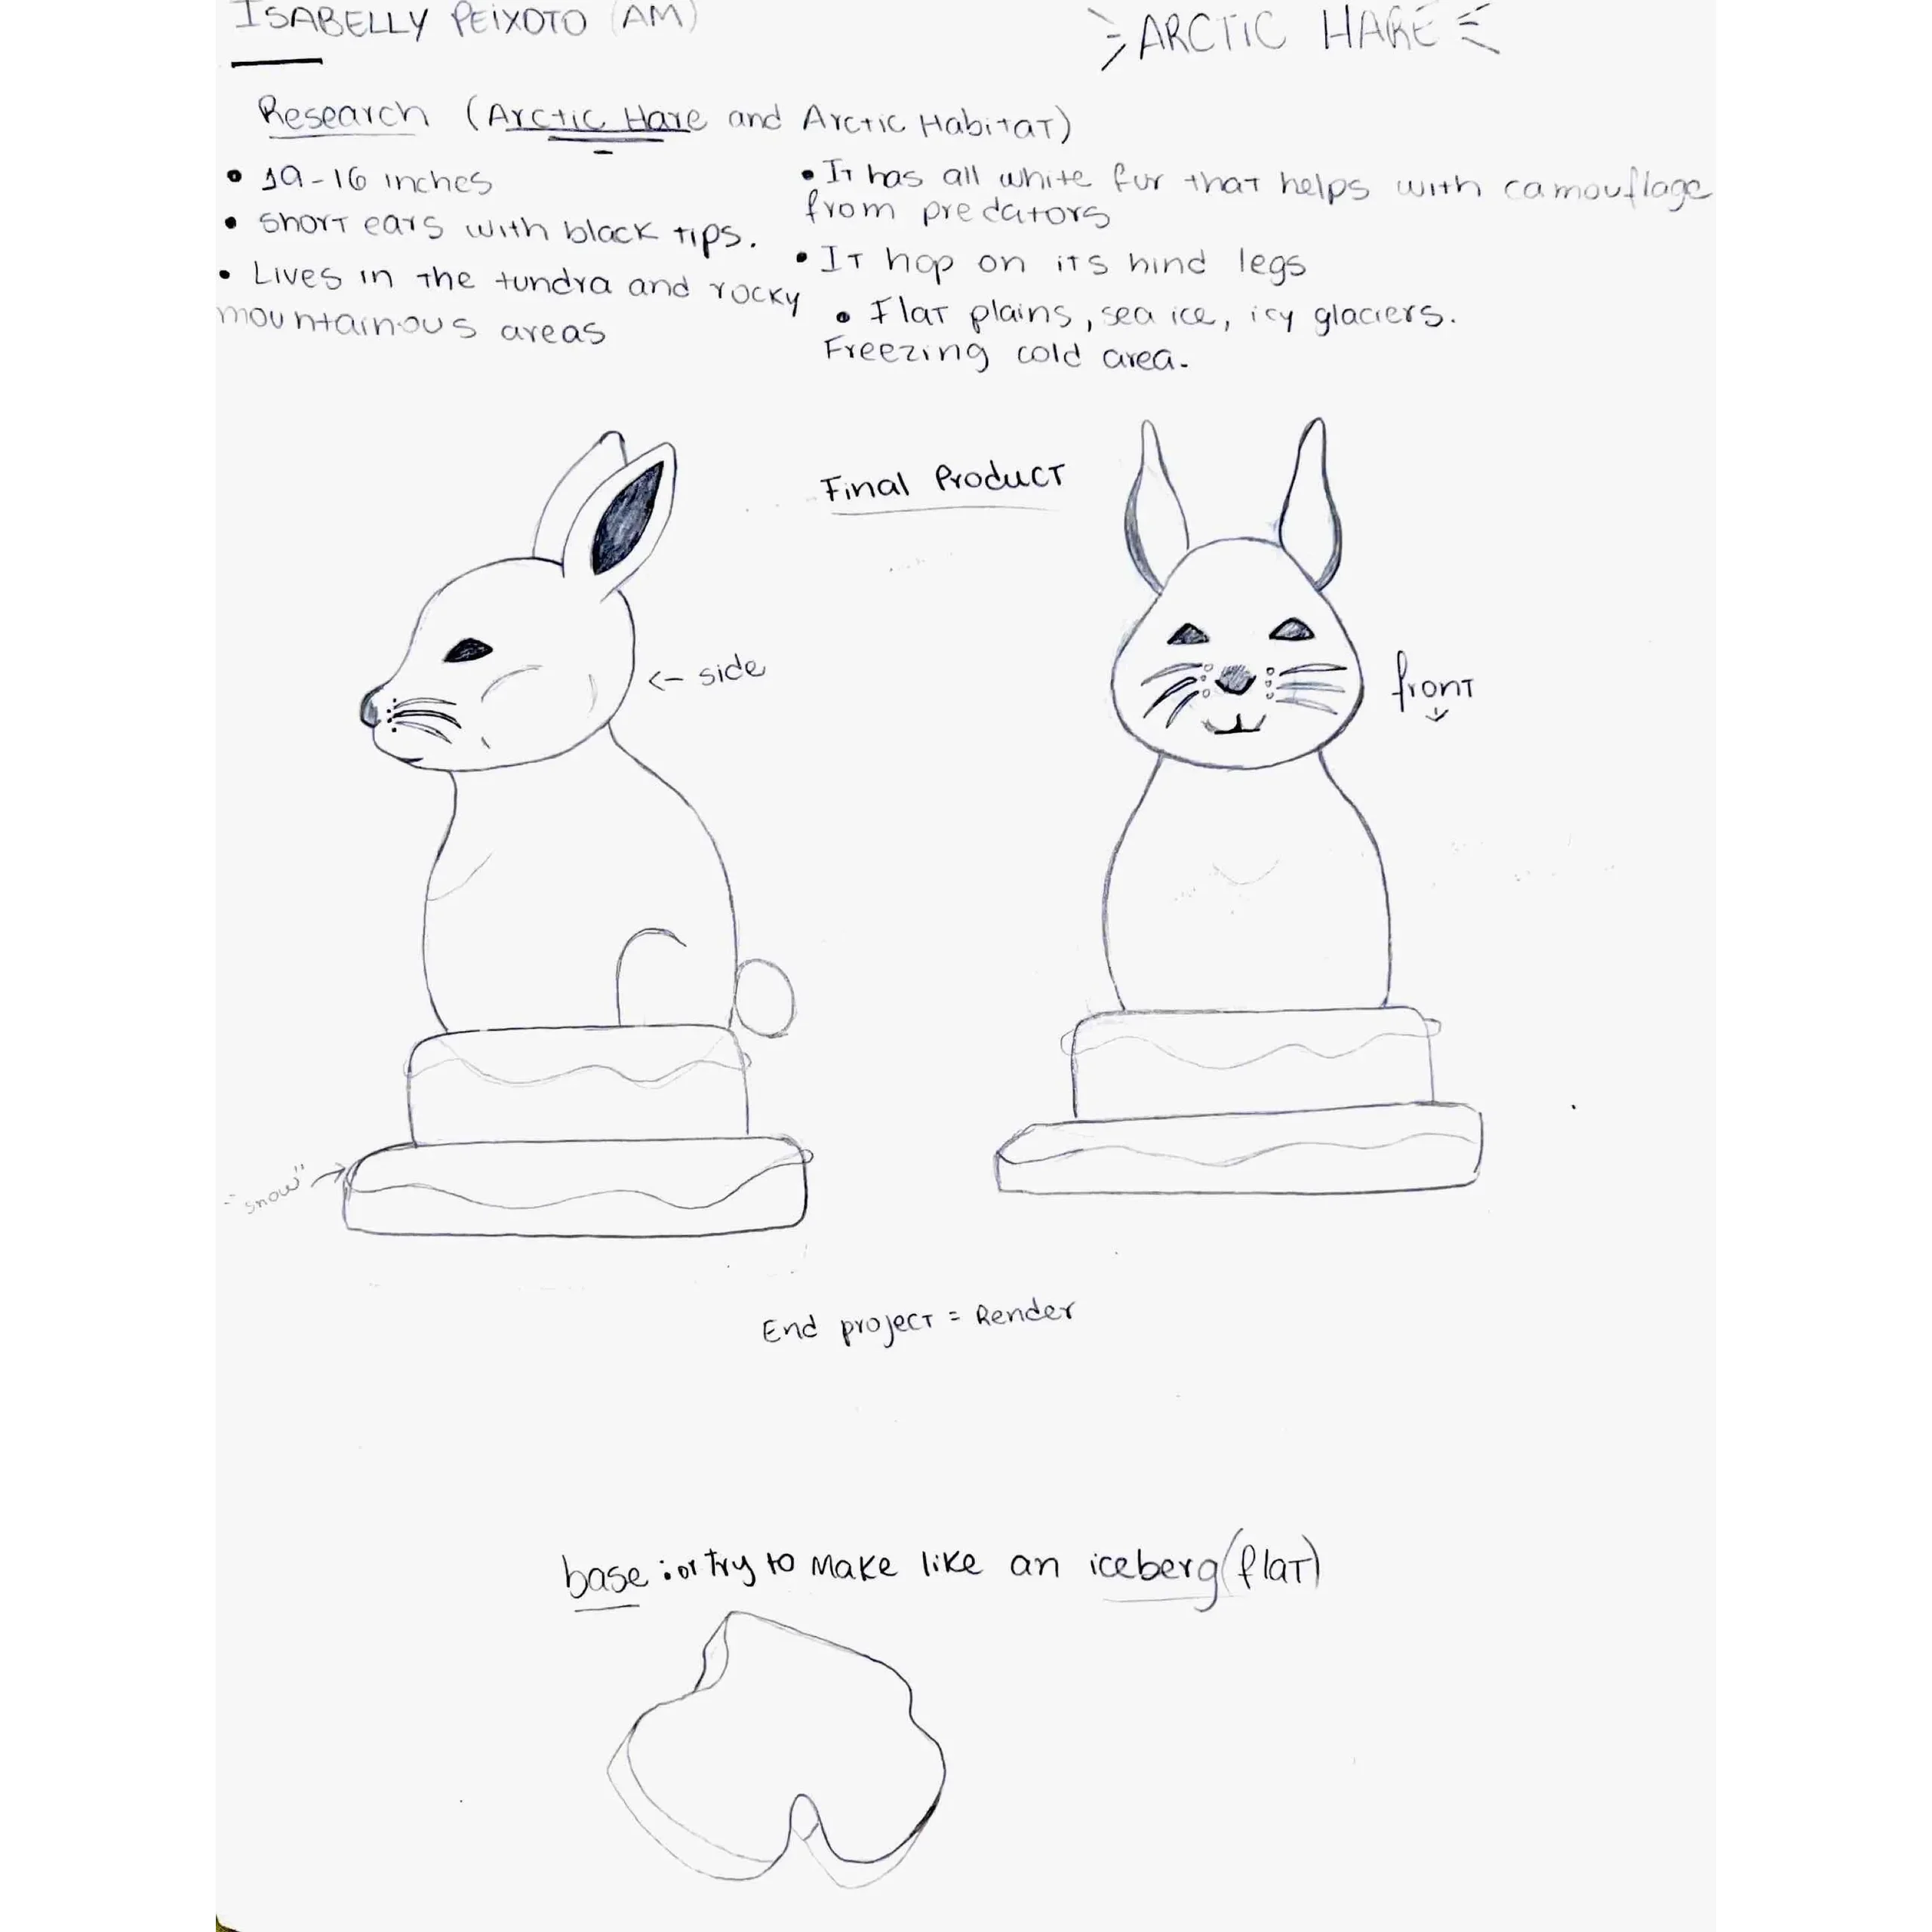 ISABELLY PEIXOTO (AM)
ARCTIC HARE
Research (Arctic Hare and Arctic Habitat)
• 19-16 inches
• Short ears with black tips.
• Lives in the tundra and rocky
mountainous areas
• It has all white fur that helps with camouflage
from predators
• It hop on its hind legs
• Flat plains, sea ice, icy glaciers.
Freezing cold area.
Final Product
<- side
front
"snow"
End project = Render
base: or try to make like an iceberg (flat)